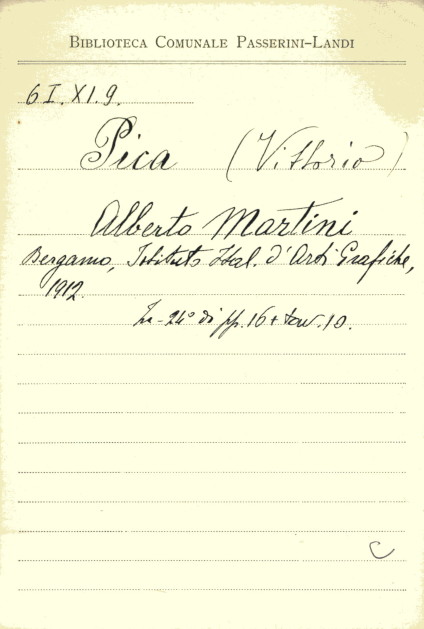 BIBLIOTECA COMUNALE PASSERINI-LANDI
6 I. XI. 9.
Pica (Vittorio)
Alberto Martini
Bergamo, Istituto Ital. d'Arti Grafiche,
1912.
In-24° di pp. 16 + tav. 10.
C